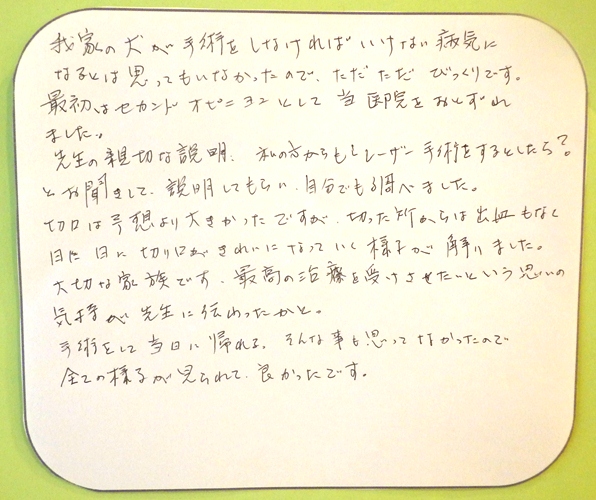 我家の犬が手術をしなければいけない病気に
なるとは思ってもいなかったので、ただただびっくりです。
最初はセカンドオピニヨンとして当医院をおとずれ
ました。
先生の親切な説明、私の方からもしレーザー手術をするとしたら?
とお聞きして、説明してもらい、自分でも調べました。
切口は予想より大きかったですが、切った所からは出血もなく
日に日に切り口がきれいになっていく様子が解りました。
大切な家族です。最高の治療を受けさせたいという思いの
気持が先生に伝わったかと。
手術をして当日に帰れる。そんな事も思ってなかったので
全ての様子が見られて、良かったです。